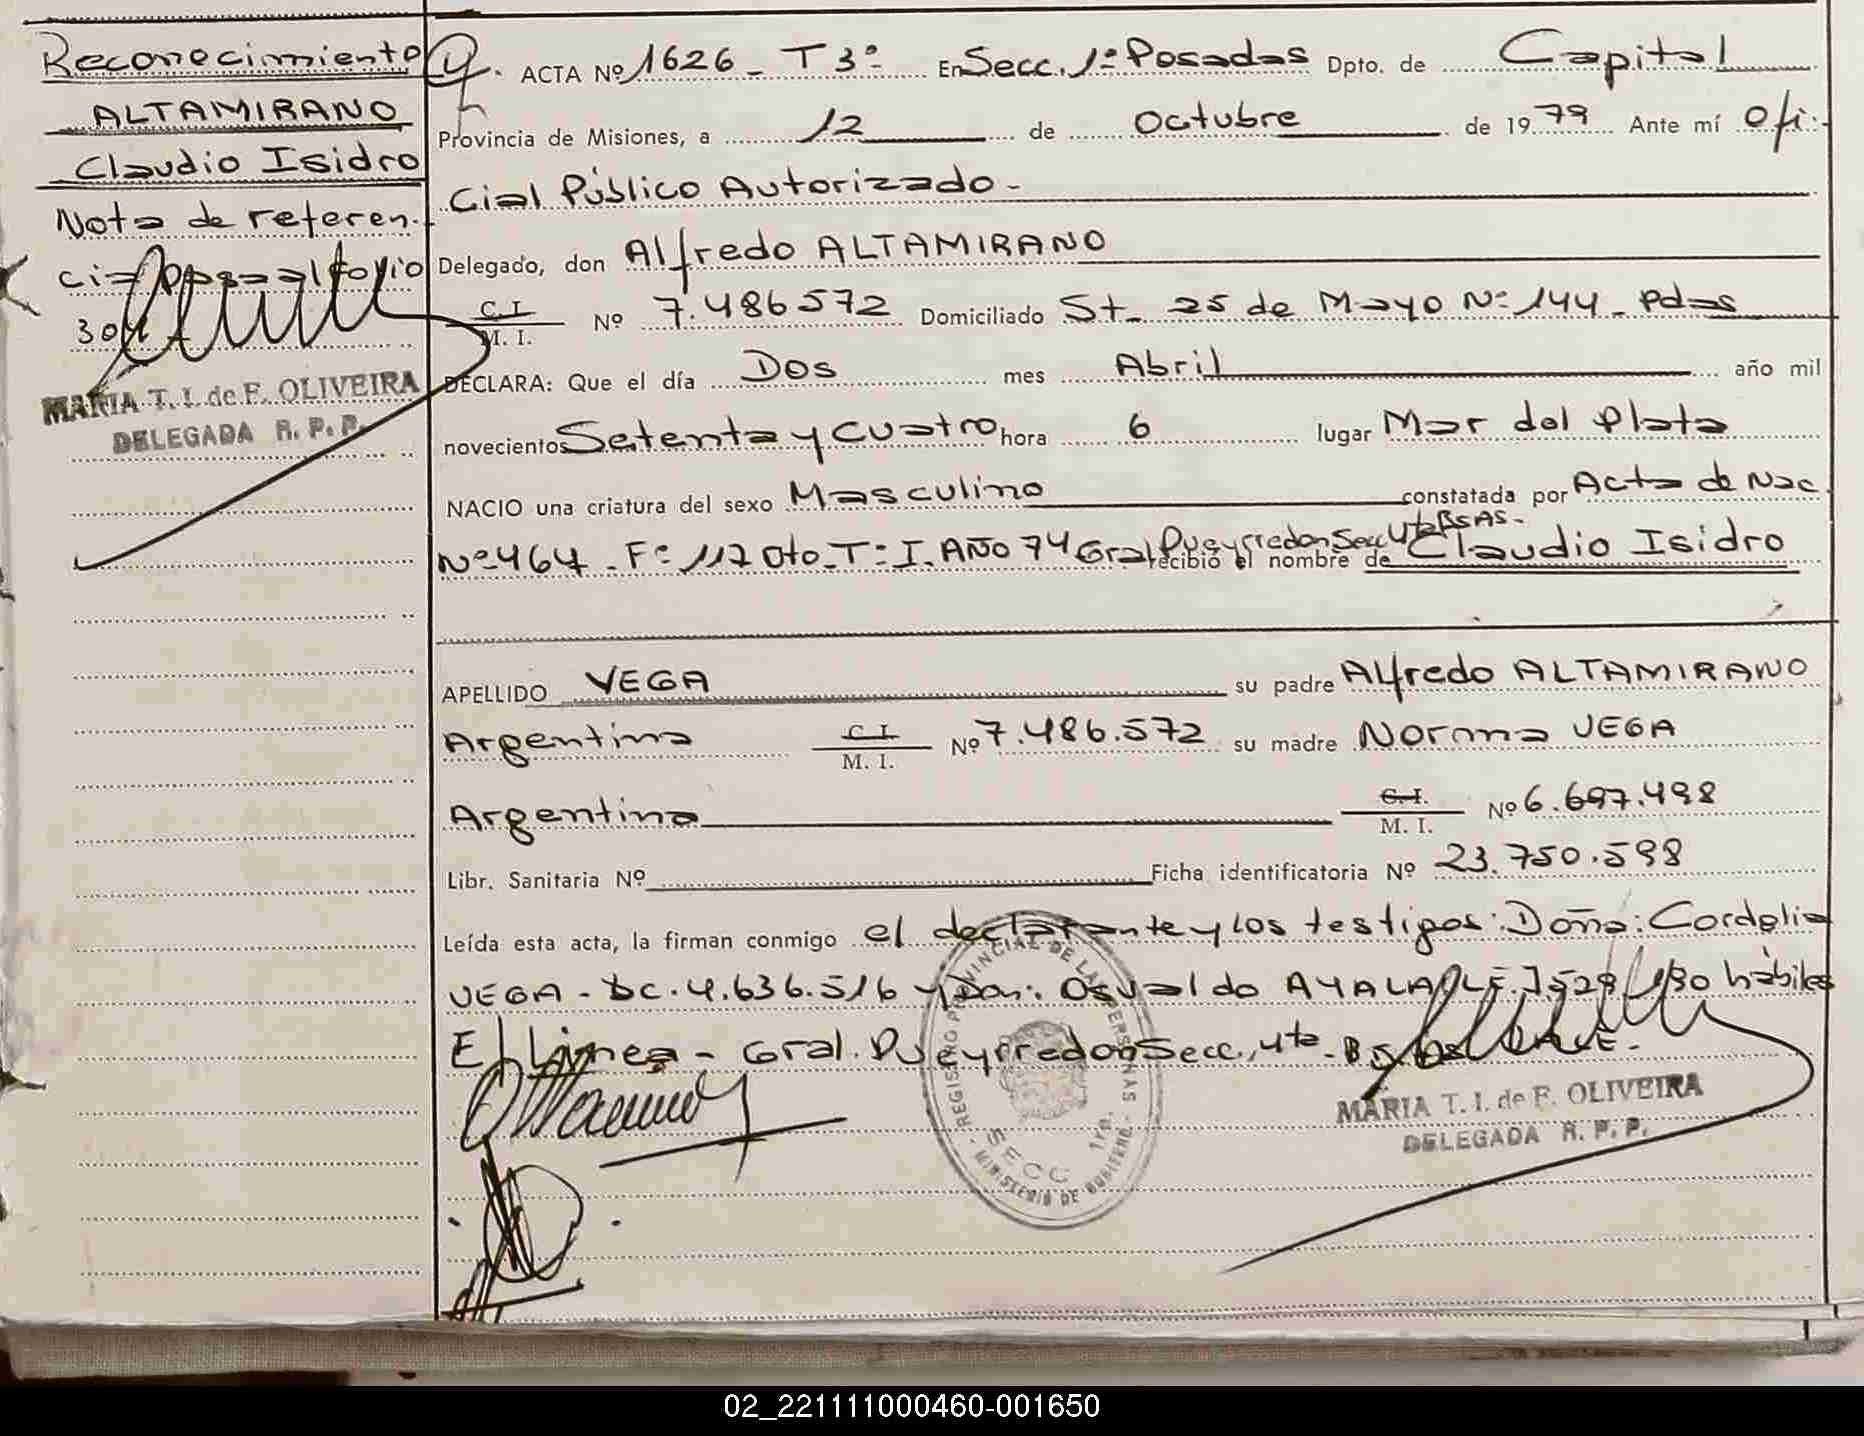 Reconocimiento
ALTAMIRANO
Claudio Isidro
Nota de referen-
cia pasa al folio
304
MARIA T. I. de F. OLIVEIRA
DELEGADA R. P. P.
ACTA Nº 1626 - T 3º En Secc. 1º Posadas Dpto. de Capital
Provincia de Misiones, a 12 de Octubre de 1979 Ante mí Ofi-
cial Público Autorizado -
Delegado, don Alfredo ALTAMIRANO
C. I. / M. I. Nº 7.486572 Domiciliado St. 25 de Mayo Nº 144 - Pdas
DECLARA: Que el día Dos mes Abril año mil
novecientos Setenta y cuatro hora 6 lugar Mar del Plata
NACIO una criatura del sexo Masculino constatada por Acta de Nac.
Nº 464 - Fº 117 Dto. Tº I. AÑO 74 Gral Pueyrredon Secc 4ta BSAS. - recibió el nombre de Claudio Isidro
APELLIDO VEGA su padre Alfredo ALTAMIRANO
Argentina C. I. / M. I. Nº 7.486.572 su madre Norma VEGA
Argentina C. I. / M. I. Nº 6.697.498
Libr. Sanitaria Nº Ficha identificatoria Nº 23.750.598
Leída esta acta, la firman conmigo el declarante y los testigos: Doña: Cordelia
VEGA - DC. 4.636.516 y Don: Osvaldo AYALA LE. 7.529.130 hábiles
E/ Linea - Gral. Pueyrredon Secc. 4ta - Bs As VALE.
REGISTRO PROVINCIAL DE LAS PERSONAS - MINISTERIO DE GOBIERNO -
SECC. 1ra.
MARIA T. I. de F. OLIVEIRA
DELEGADA R. P. P.
02_221111000460-001650